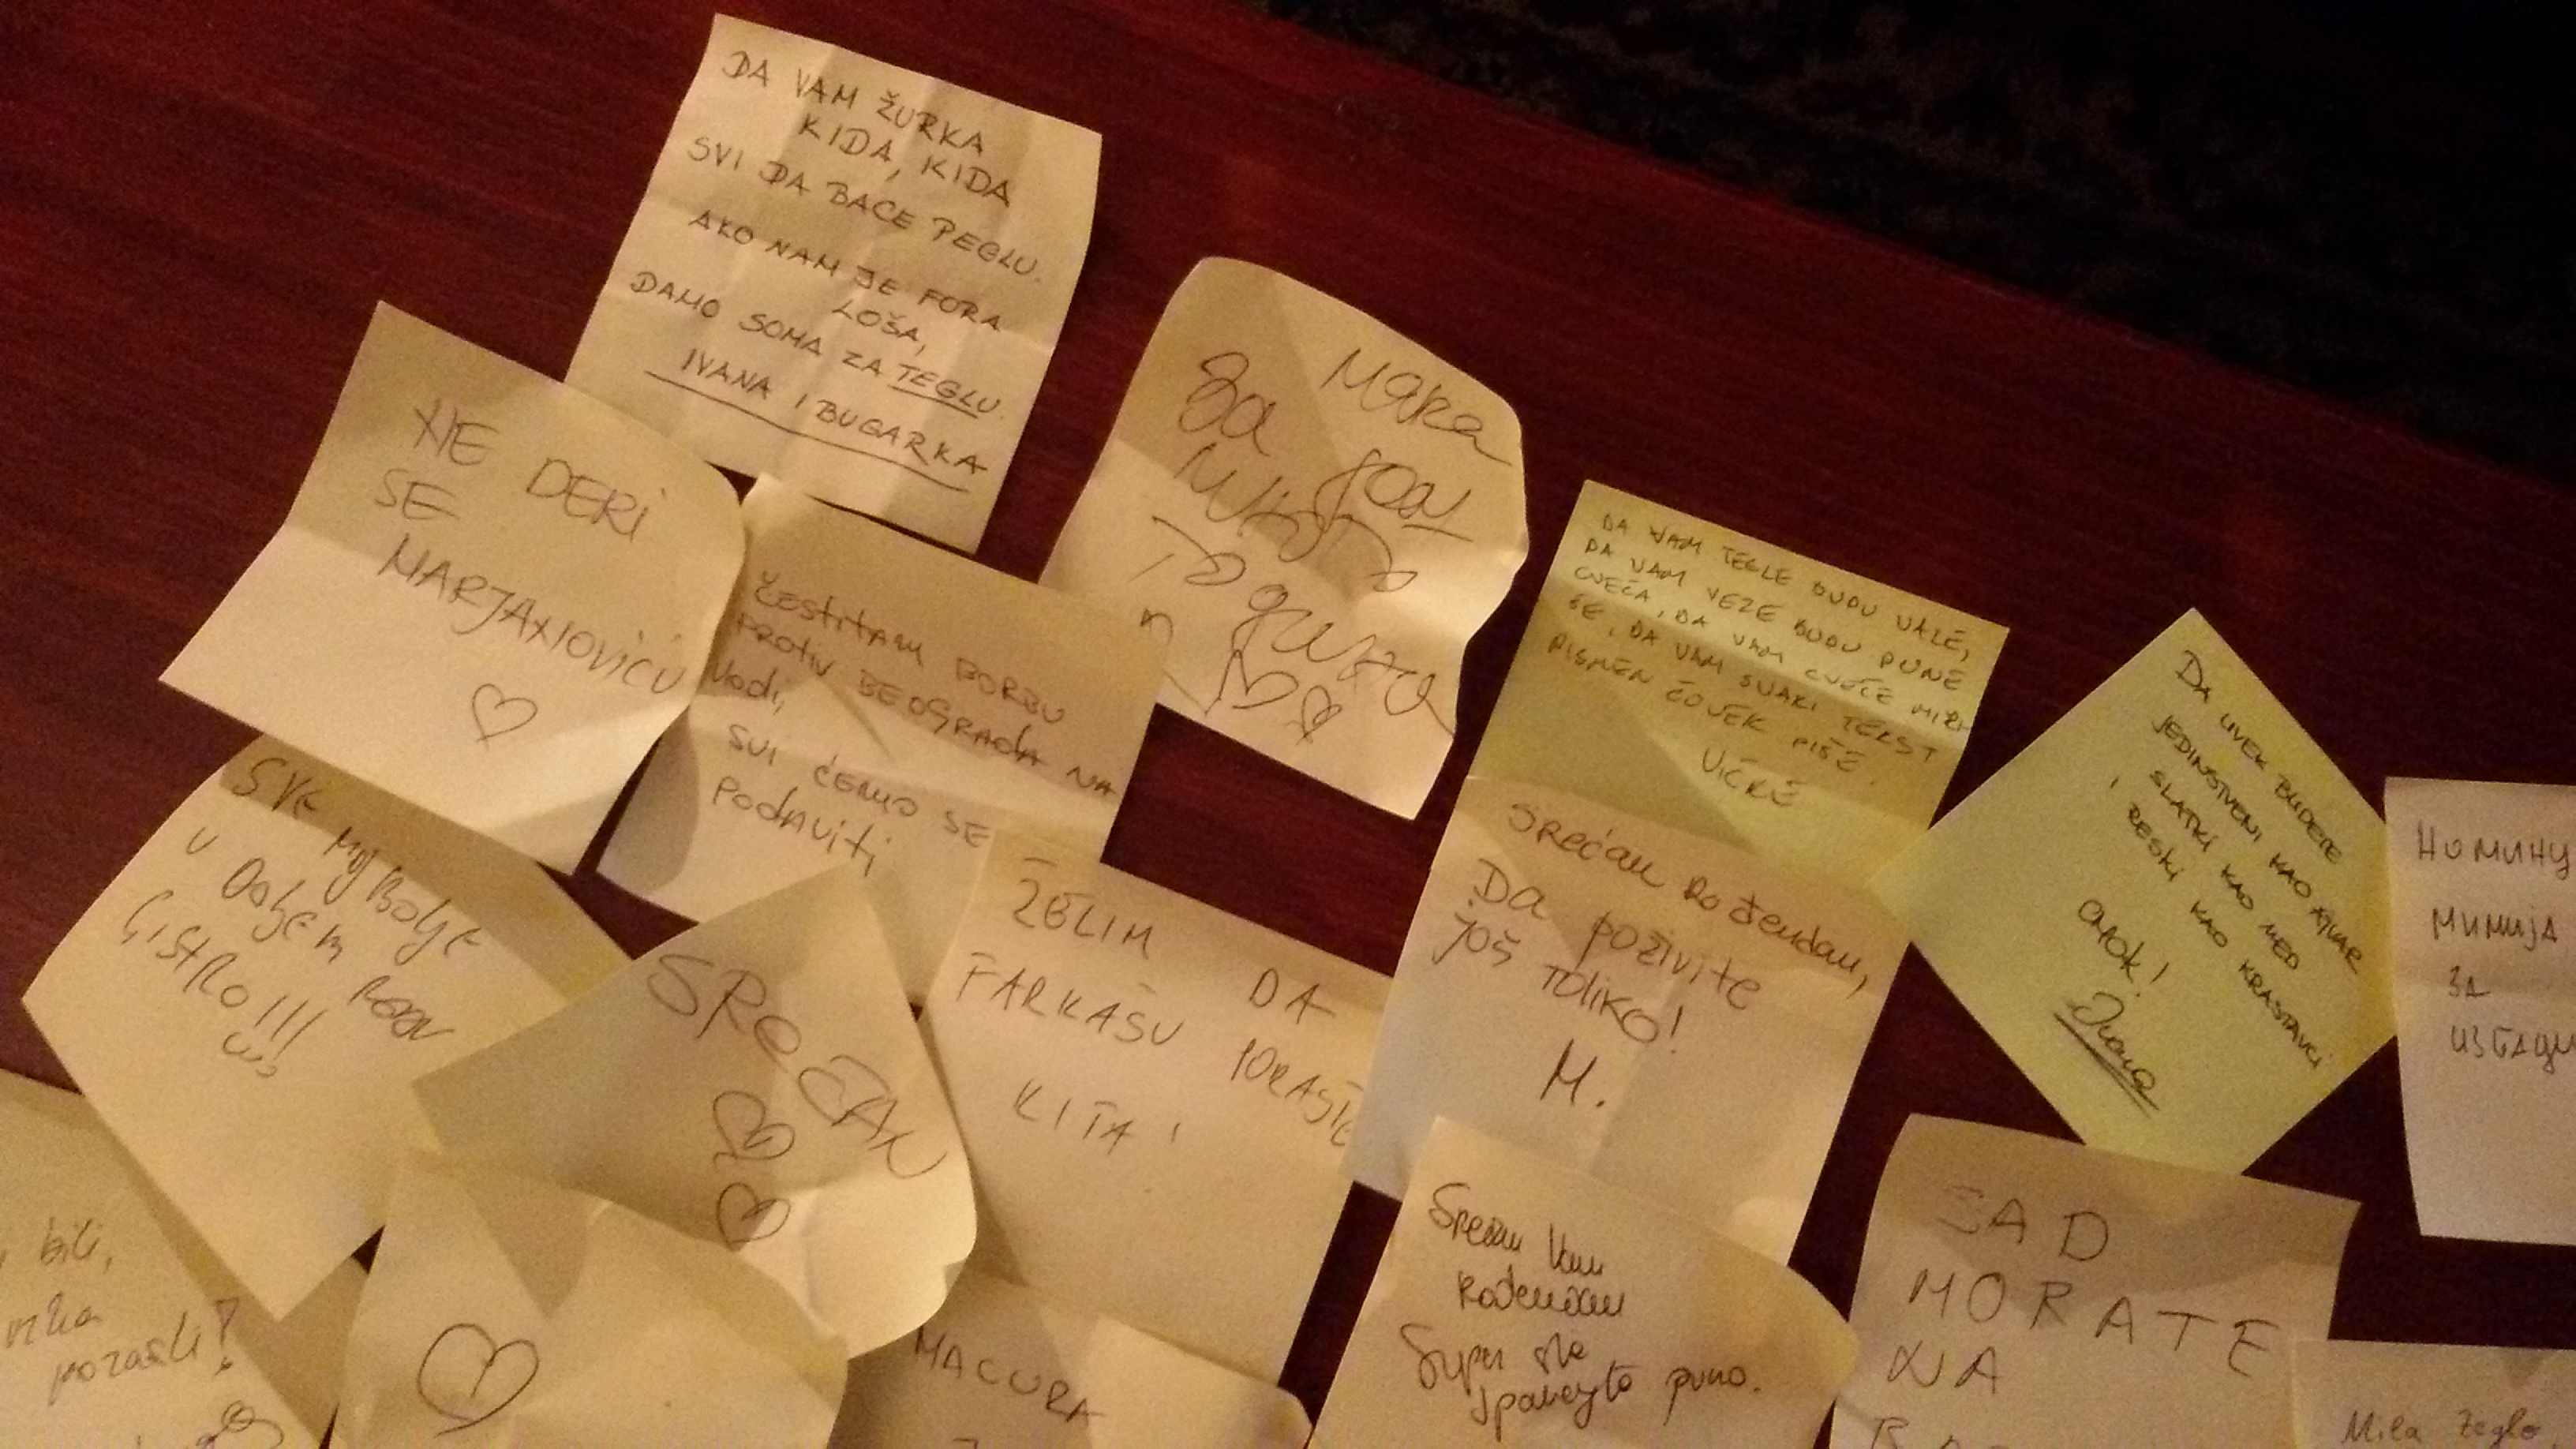 DA VAM ŽURKA
KIDA, KIDA
SVI DA BACE PEGLU.
AKO NAM JE FORA
LOŠA,
DAMO SOMA ZA TEGLU.
IVANA I BUGARKA
NE DERI
SE
MARJANOVIĆU
ČESTITAM BORBU
PROTIV BEOGRADA NA
VODI,
SVI ĆEMO SE
PODAVITI
Мака
За
DA VAM TEGLE BUDU VALE,
DA VAM VEZE BUDU PUNE
CVEĆA, DA VAM CVEĆE MIRI
ŠE, DA VAM SVAKI TEKST
PISMEN ČOVEK PIŠE.
DA UVEK BUDETE
JEDINSTVENI KAO AJVAR
SLATKI KAO MED
I RESKI KAO KRASTAVCI
CMOK!
Ivana
НОМИНУ
МИМИЈА
ЗА
SVE NAJBOLJE
U DALJEM RADU
BISTRO!!!
SREĆAN
ŽELIM DA
FARKAŠU PORASTE
KITA!
Srećan rođendan,
Da poživite
još toliko!
M.
Srećan Vam
Rođendan
Super ste
puno.
SAD
MORATE
NA
bili,
porasli!
MACURA
Mila Teglo